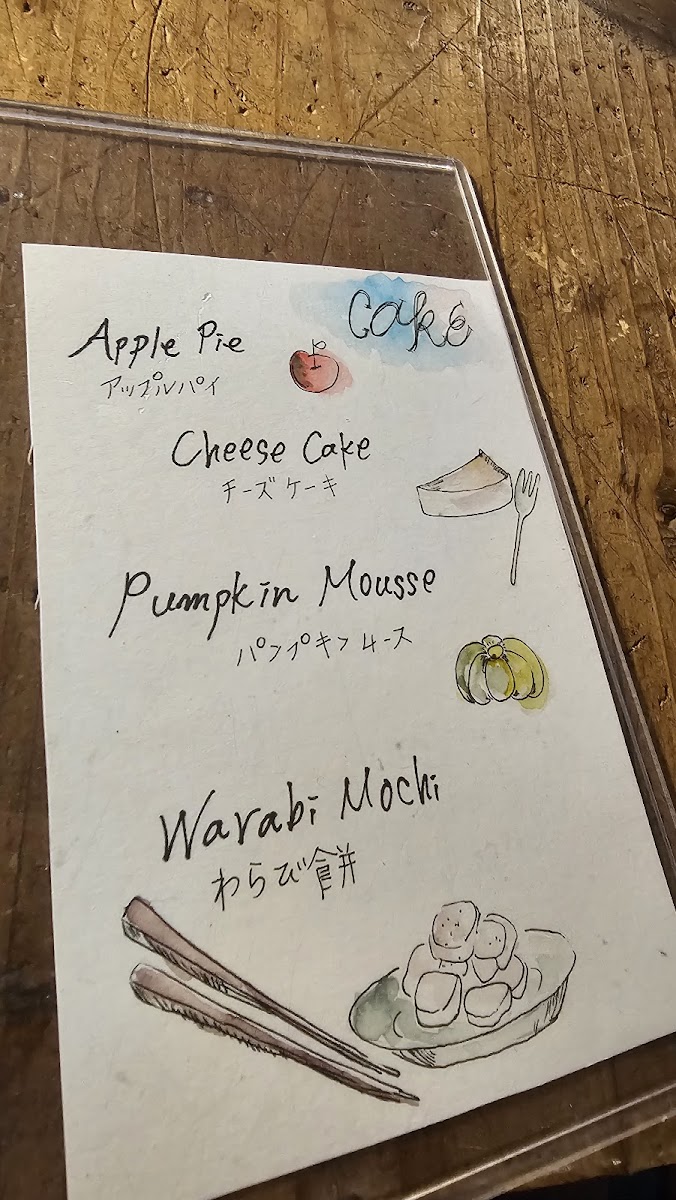 Cake
Apple Pie
アップルパイ
Cheese Cake
チーズケーキ
Pumpkin Mousse
パンプキンムース
Warabi Mochi
わらび餅